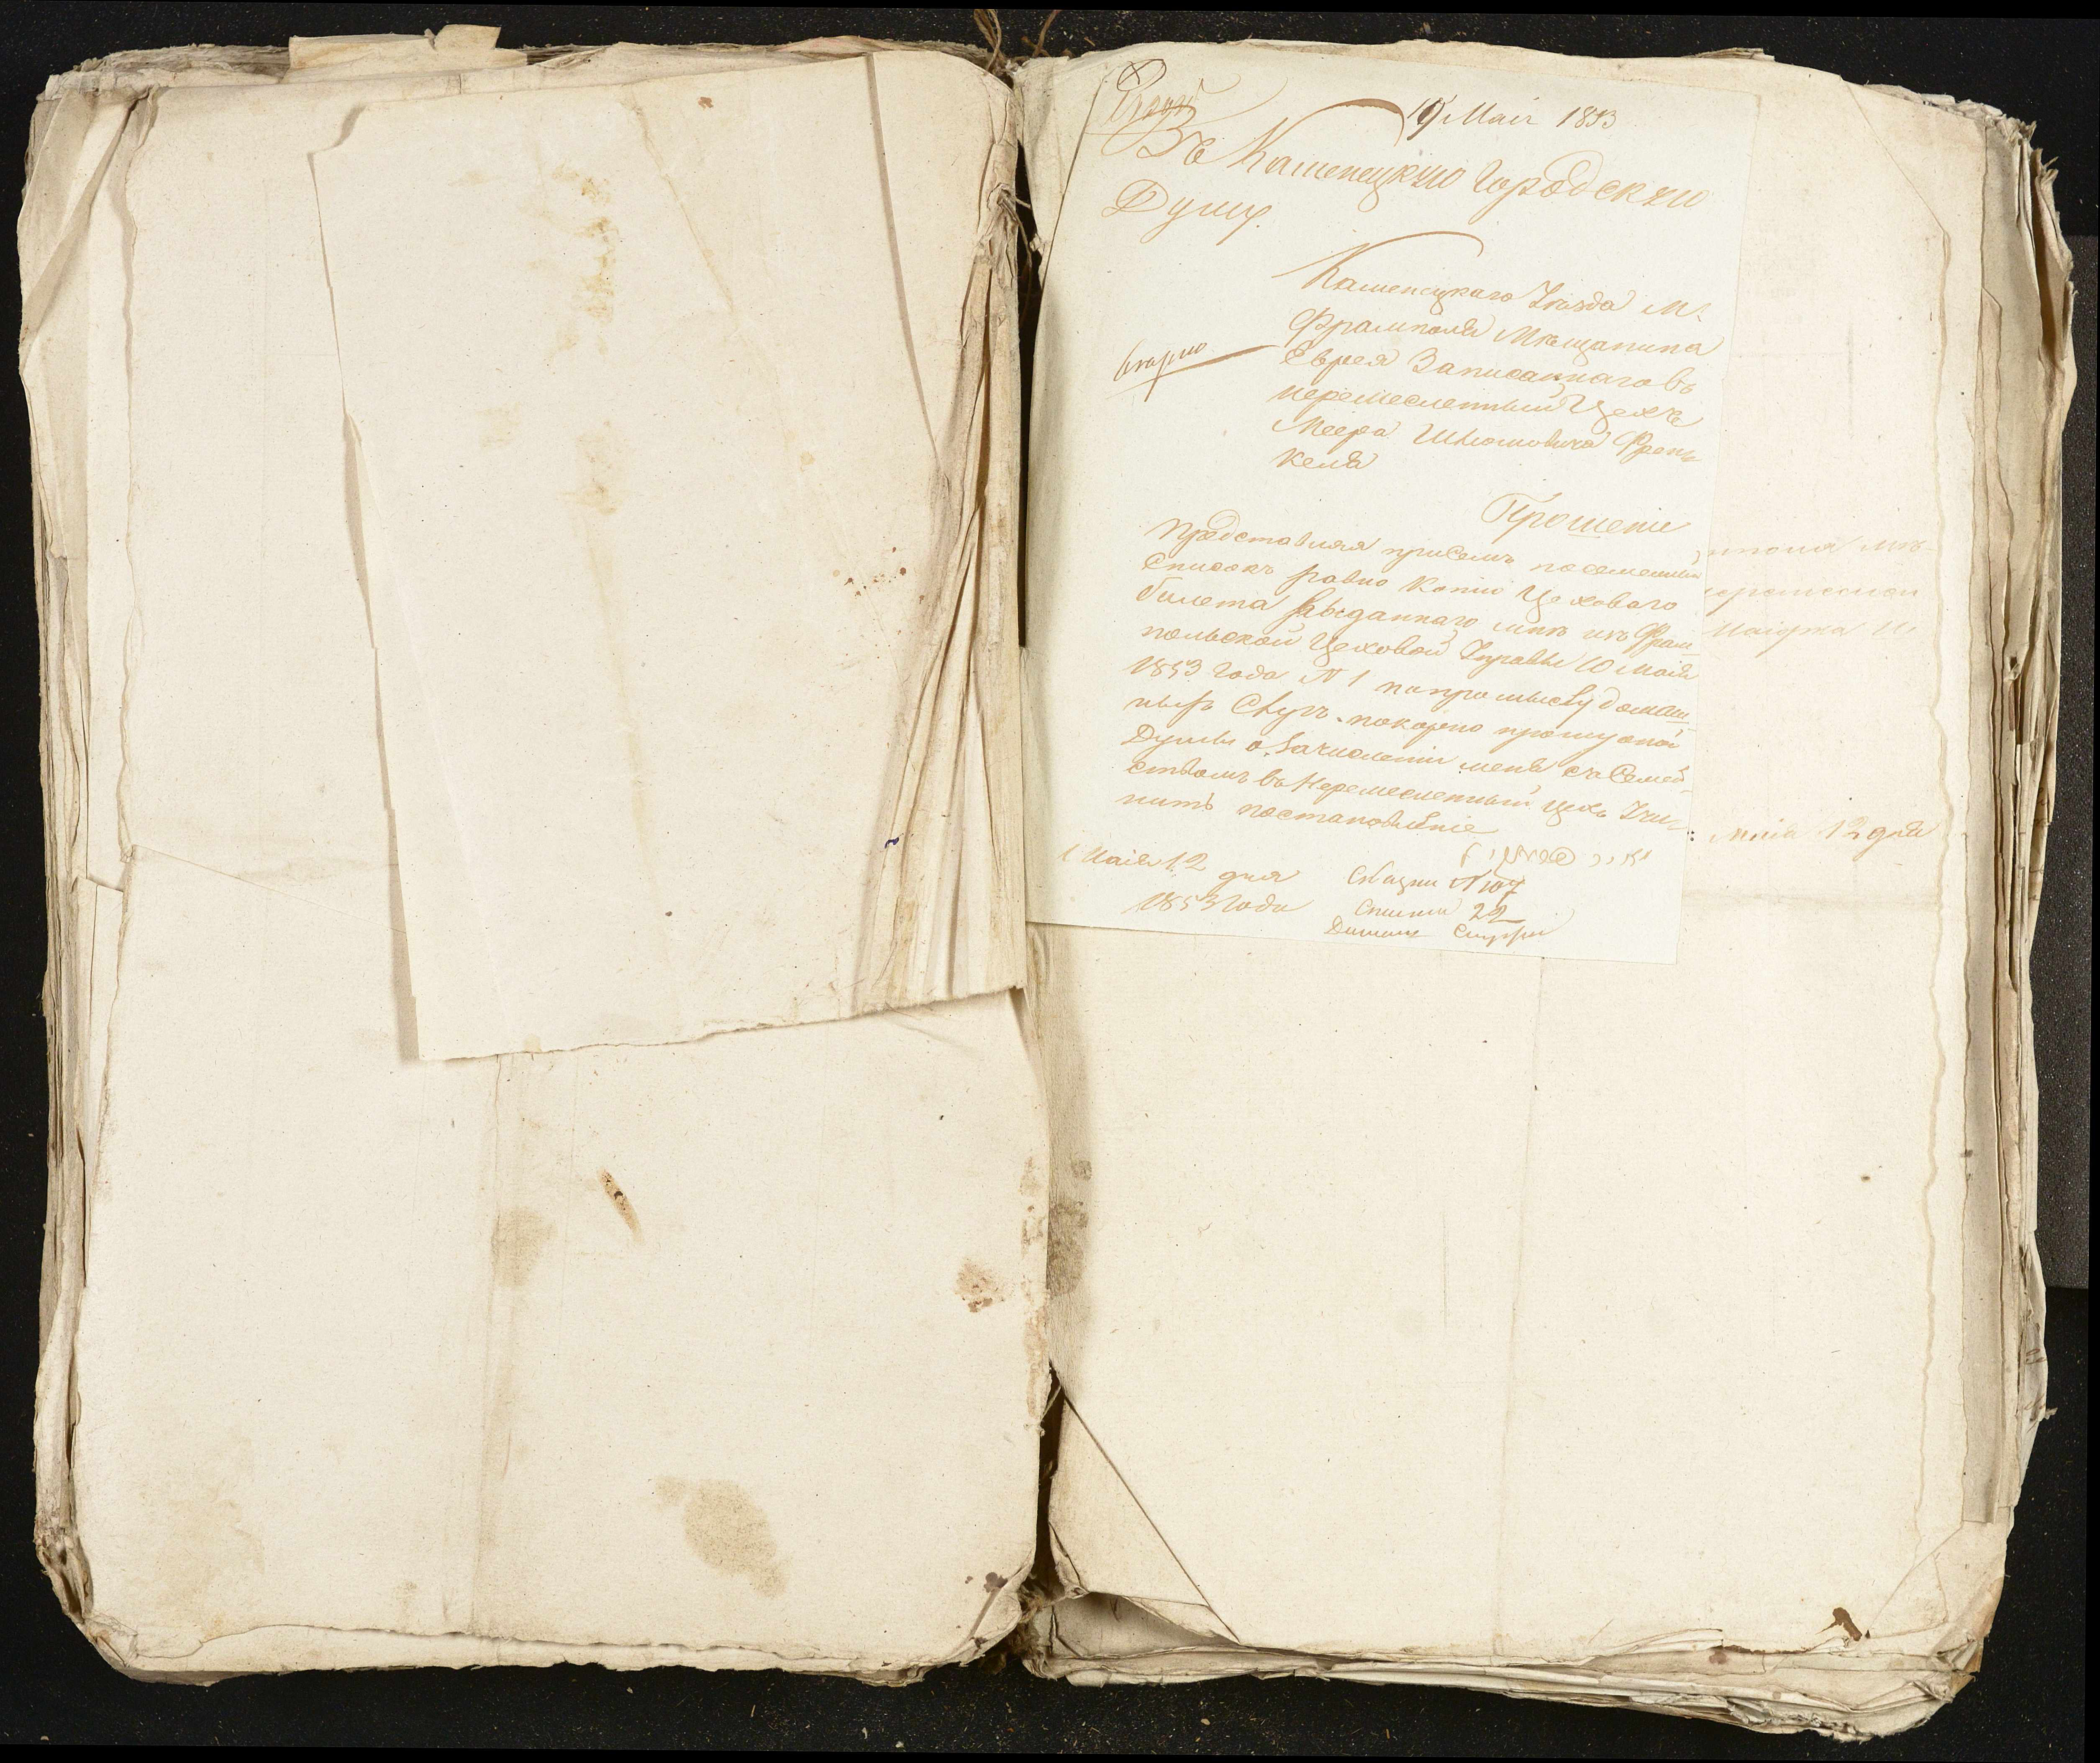 19 Маія 1853
Въ Каменецкую Городскую
Думу.
Каменецкаго Уѣзда М:
Фрамполя Мѣщанина
Еврея Записаннаго въ
неремесленный Цехъ
Меера Шлiомовича Френ-
келя
Прошеніе
Представляя присемъ посемейный
списокъ равно копію Цеховаго
билета выданнаго мнѣ изъ Фрам-
польской Цеховой Управы 10 Маія
1853 года № 1 по промыслу домаш-
ныхъ Слугъ. покорно прошу оной
Думы о зачисленіи меня съ Семей-
ствомъ въ Неремесленный цехъ Учи-
нить постановленіе
Маія 12 дня
1853 года
Сказки № 107
22
Маія 12 дня